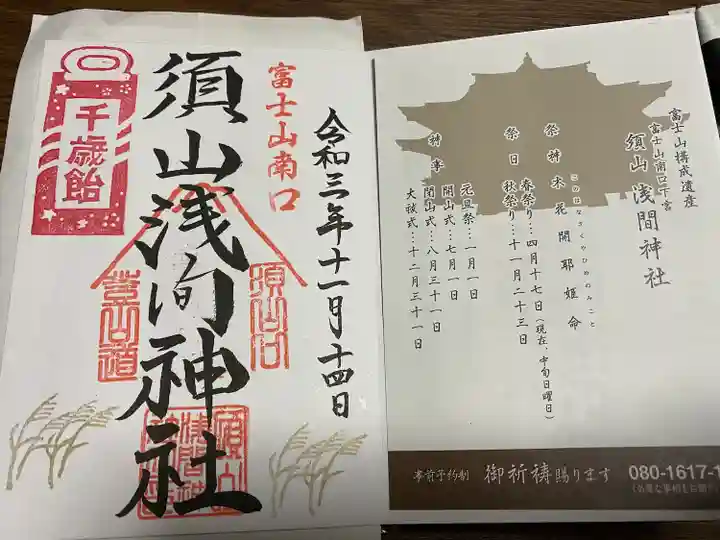 令和三年十一月十四日
富士山南口
須山浅间神社
須山口
登山道
千歳飴
富士山構成遺産
富士山南口下宮
須山 浅間神社
このはなさくやひめのみこと
祭神 木花開耶姫命
祭日 春祭り…四月十七日(現在、中旬日曜日)
秋祭り…十一月二十三日
神事 元旦祭…一月一日
開山式…七月一日
閉山式…八月三十一日
大祓式…十二月三十一日
事前予約制 御祈祷賜ります
080-1617-1